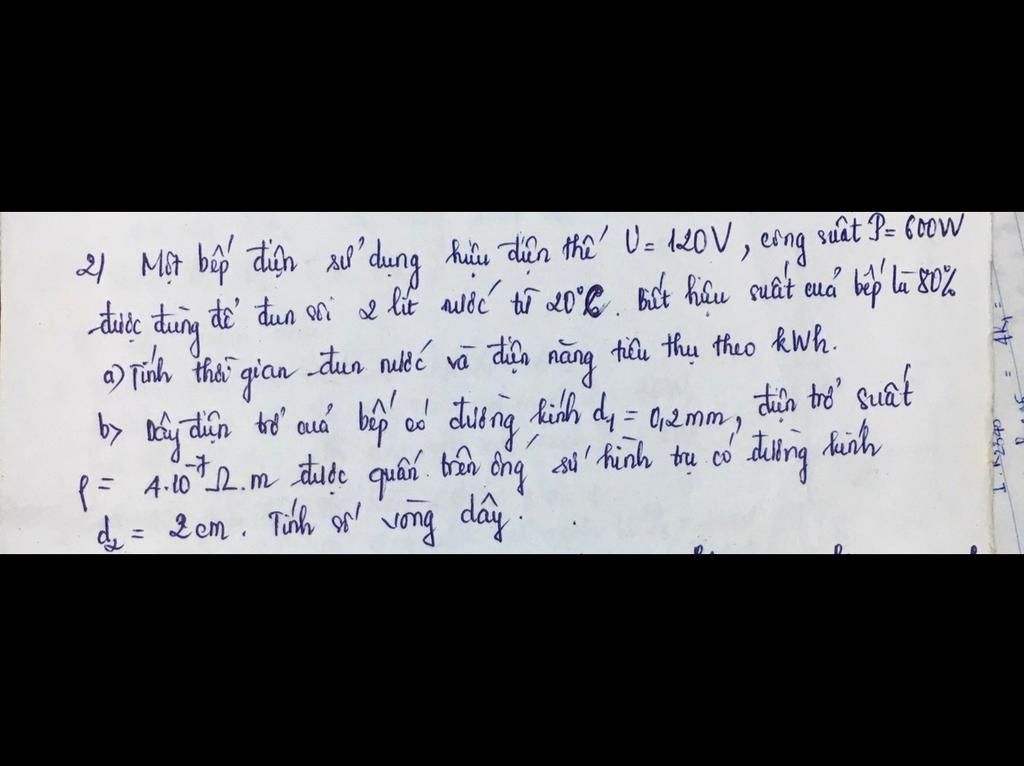 2) Một bếp điện sử dụng hiệu điện thế U = 120V, công suất P = 600W
được dùng để đun sôi 2 lít nước từ 20°C. Biết hiệu suất của bếp là 80%
a) Tính thời gian đun nước và điện năng tiêu thụ theo kWh.
b) Dây điện trở của bếp có đường kính d₁ = 0,2mm, điện trở suất
ρ = 4.10⁻⁷ Ω.m được quấn trên ống sứ hình trụ có đường kính
d₂ = 2cm. Tính số vòng dây.